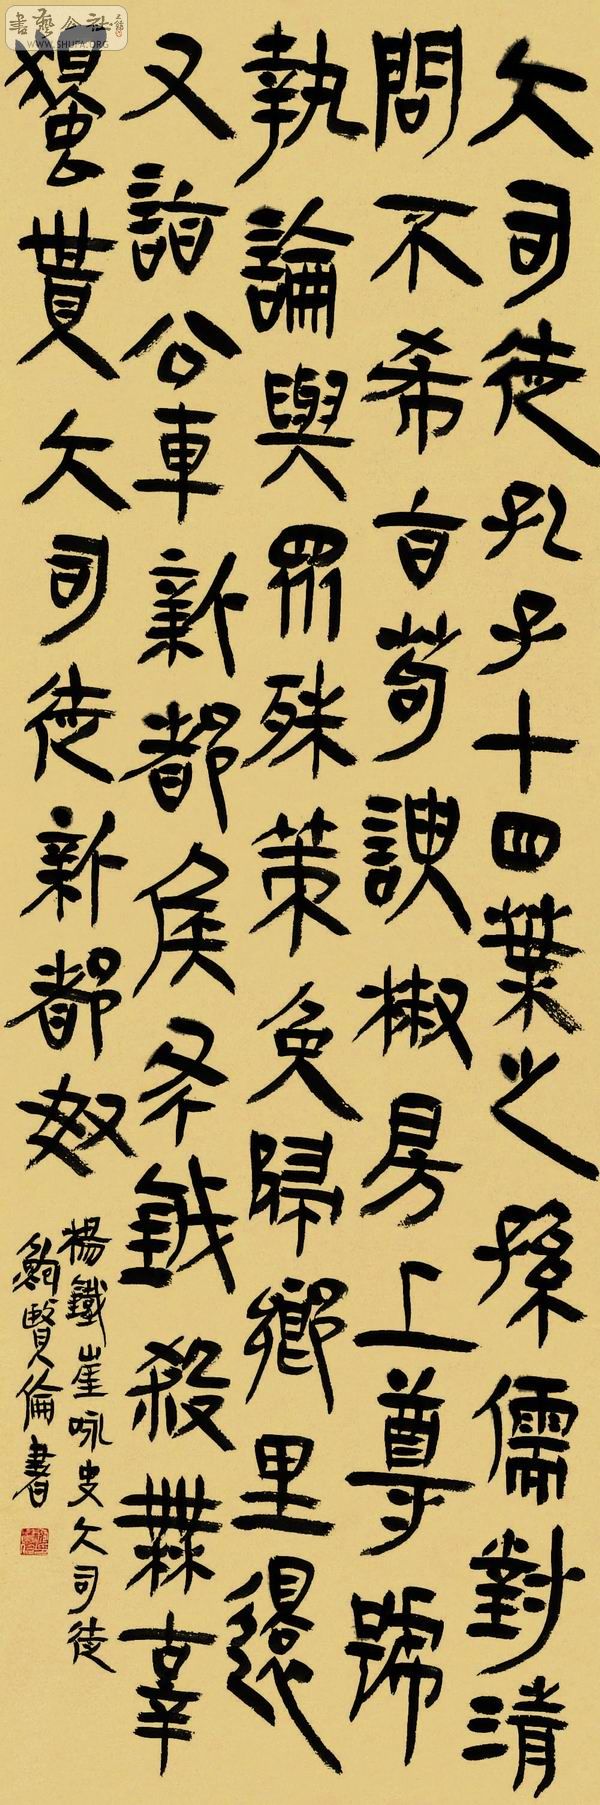 書藝公社
WWW.SHUFA.ORG
大司徒孔子十四葉之孫儒對清
問不希旨苟諛椒房上尊號
執論與眾殊策免歸鄉里
又詣公車新都侯鉞殺無辜
貰大司徒新都奴
楊鐵崖咏史大司徒
鮑賢倫書